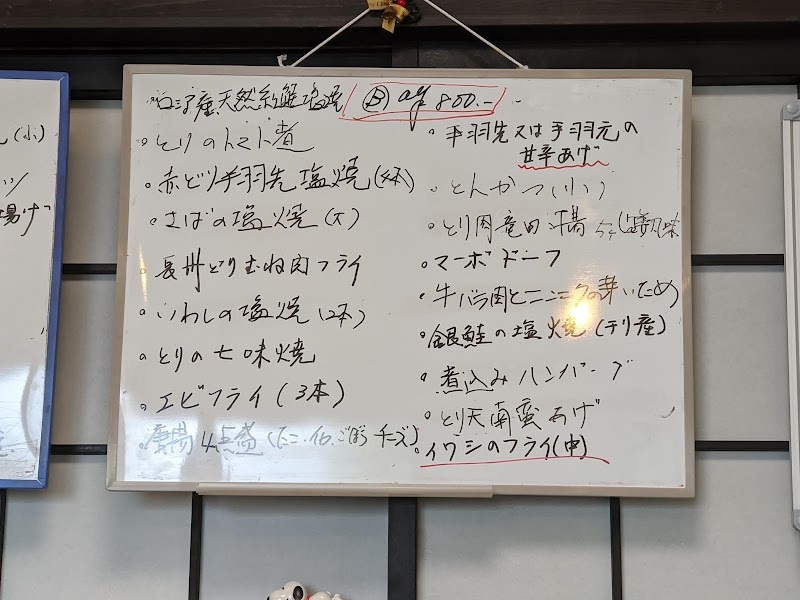 ロシア産天然紅鮭塩焼 Ⓑ all 800.-
・とりのトマト煮
・赤どり手羽先塩焼(4本)
・さばの塩焼(大)
・長州どりむね肉フライ
・いわしの塩焼(2本)
・とりの七味焼
・エビフライ(3本)
唐揚4点盛(たこ・イカ・ごぼう・チーズ)
・手羽先又は手羽元の
甘辛あげ
・とんかつ(小)
・とり肉竜田揚
・マーボドーフ
・牛バラ肉とニンニクの芽いため
・銀鮭の塩焼(チリ産)
・煮込みハンバーグ
・とり天南蛮あげ
・イワシのフライ(中)
(小)
揚げ